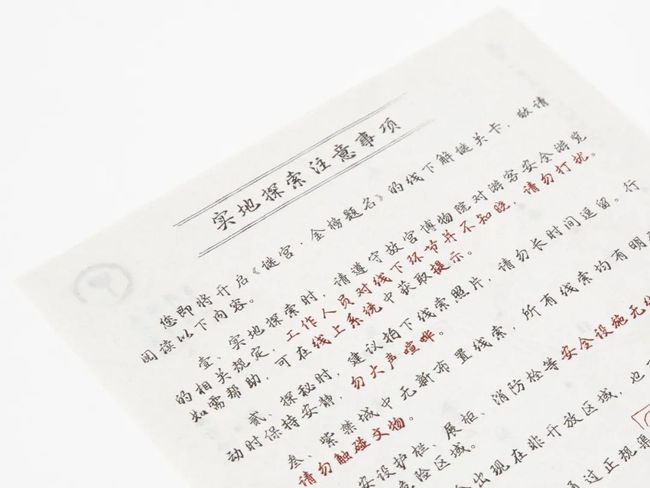 实地探索注意事项
您即将开启《谜宫·金榜题名》的线下解谜关卡,敬请
阅读以下内容。
壹、实地探索时,请遵守故宫博物院对游客安全游览
的相关规定,工作人员对线下环节并不知晓,请勿打扰。
如需帮助,可在线上系统中获取提示。
贰、探秘时,建议拍下线索照片,请勿长时间逗留。行
动时保持安静,勿大声喧哗。
叁、紫禁城中无新布置线索,所有线索均有明
请勿触碰文物。
安设护栏、展柜、消防栓等安全设施无
危险区域。
会出现在非开放区域,也
通过正规渠